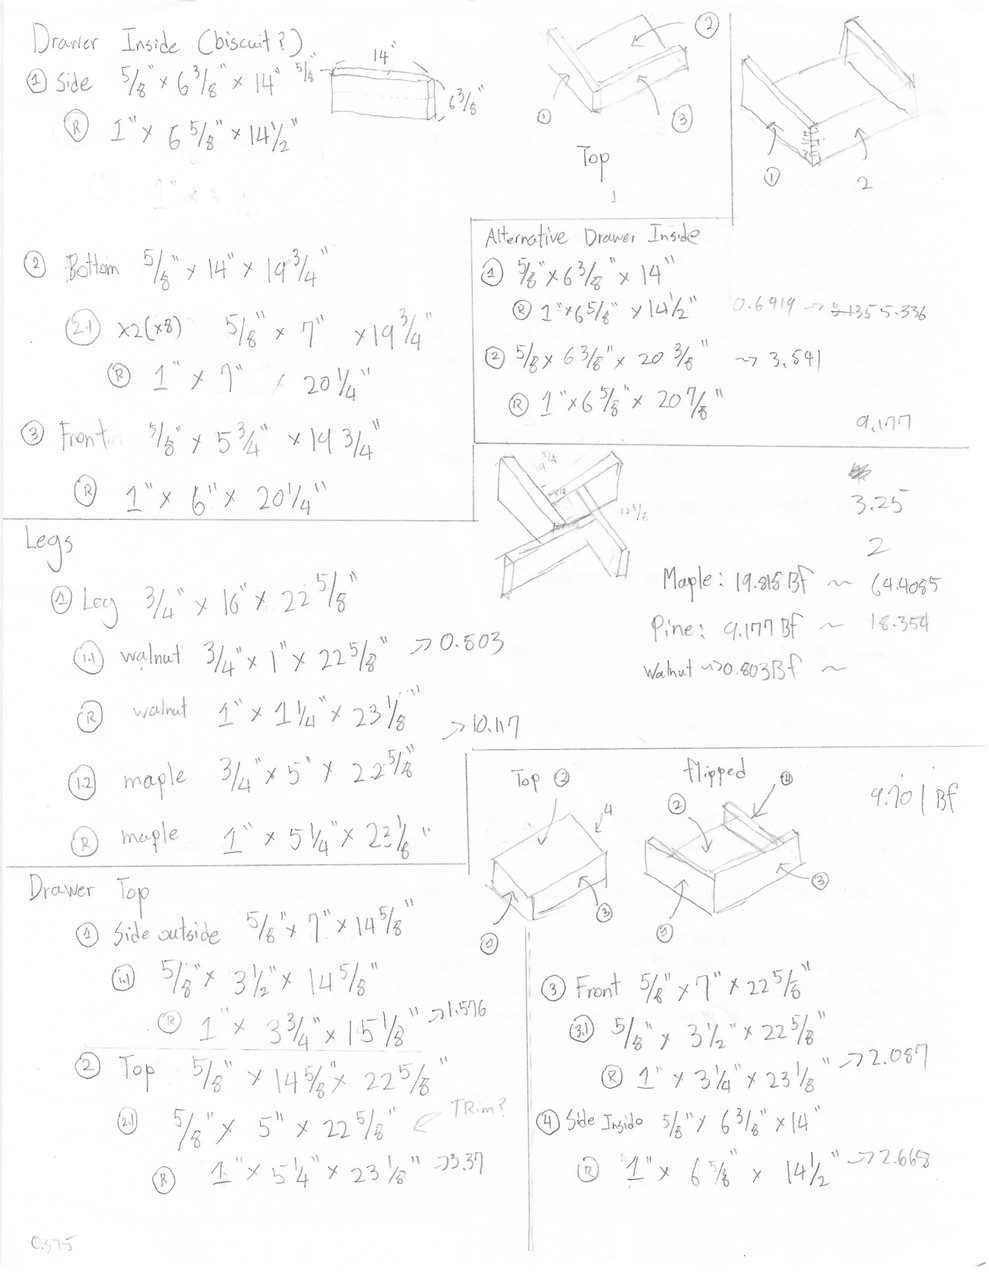 Drawer Inside (biscuit?)
① Side 5/8" x 6 3/8" x 14"
Ⓡ 1" x 6 5/8" x 14 1/2"
14"
5/8"
6 3/8"
②
①
③
Top
①
2
② Bottom 5/8" x 14" x 19 3/4"
2.1 x2(x8) 5/8" x 7" x 19 3/4"
Ⓡ 1" x 7" x 20 1/4"
③ Front 5/8" x 5 3/4" x 19 3/4"
Ⓡ 1" x 6" x 20 1/4"
Alternative Drawer Inside
① 5/8" x 6 3/8" x 14"
Ⓡ 1" x 6 5/8" x 14 1/2" 0.6919 → 5.336
② 5/8 x 6 3/8" x 20 3/8" → 3.841
Ⓡ 1" x 6 5/8" x 20 7/8"
9.177
19 3/4
22 5/8
3.25
2
Maple: 19.818 Bf ~ 64.4085
Pine: 9.177 Bf ~ 18.354
Walnut → 0.803 Bf ~
Legs
① Leg 3/4" x 16" x 22 5/8"
1.1 walnut 3/4" x 1" x 22 5/8" → 0.803
Ⓡ walnut 1" x 1 1/4" x 23 1/8"
→ 10.117
1.2 maple 3/4" x 5" x 22 5/8"
Ⓡ maple 1" x 5 1/4" x 23 1/8"
Top ②
4
①
③
flipped
②
④
③
9.701 Bf
Drawer Top
① Side outside 5/8" x 7" x 14 5/8"
1.1 5/8" x 3 1/2" x 14 5/8"
Ⓡ 1" x 3 3/4" x 15 1/8" → 1.576
② Top 5/8" x 14 5/8" x 22 5/8"
2.1 5/8" x 5" x 22 5/8" ← TRim?
Ⓡ 1" x 5 1/4" x 23 1/8" → 3.37
③ Front 5/8" x 7" x 22 5/8"
3.1 5/8" x 3 1/2" x 22 5/8"
Ⓡ 1" x 3 1/4" x 23 1/8" → 2.087
④ Side Inside 5/8" x 6 3/8" x 14"
Ⓡ 1" x 6 5/8" x 14 1/2" → 2.668
0.375